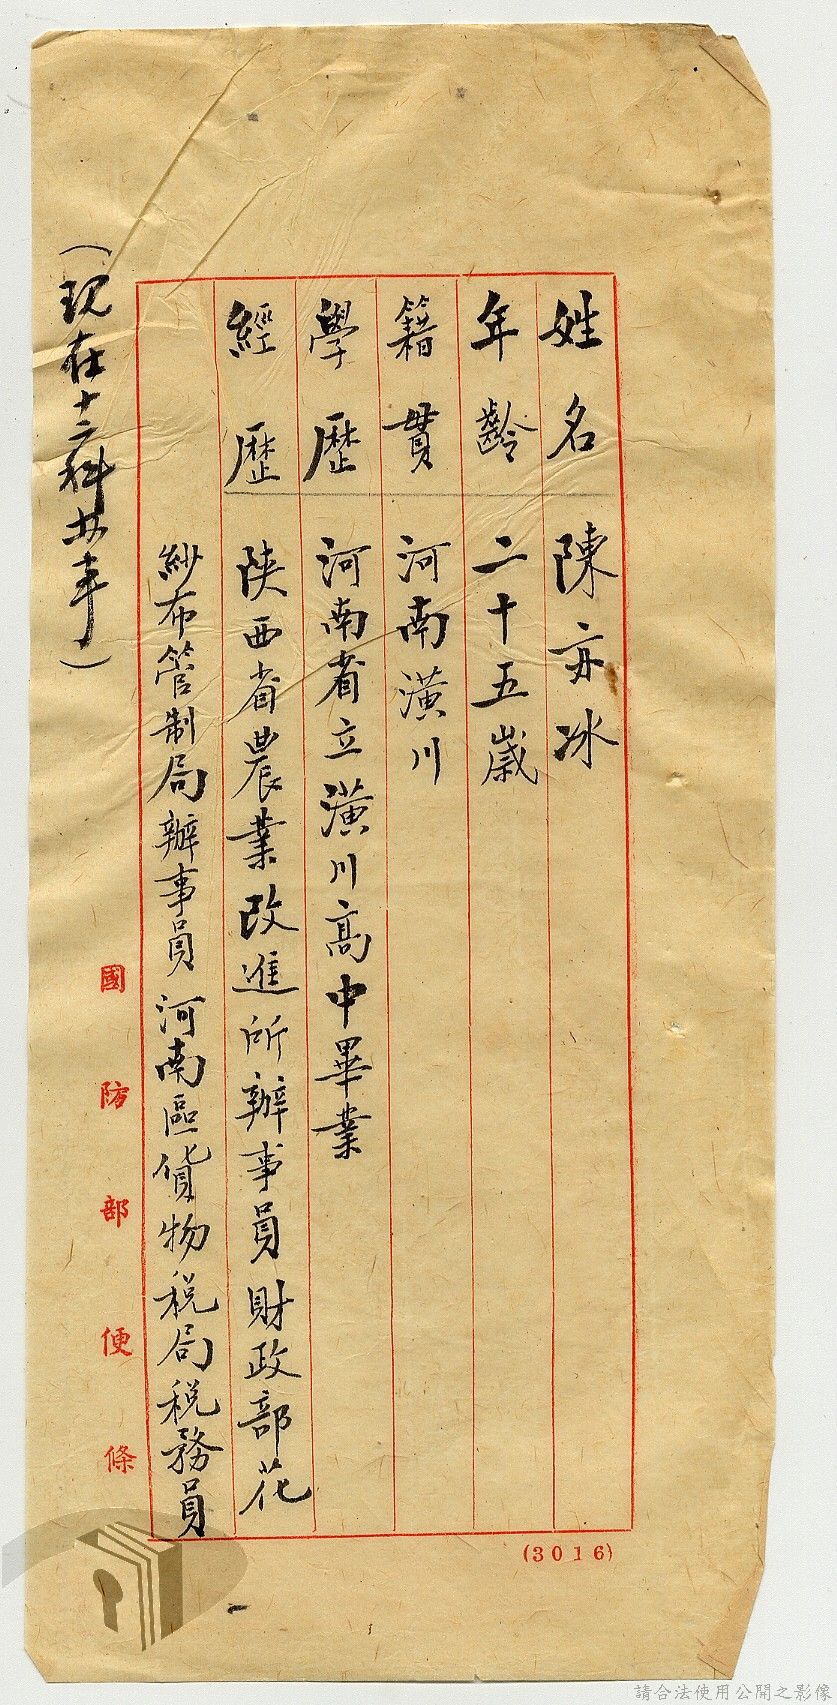 姓名 陳亦冰
年齡 二十五歲
籍貫 河南潢川
學歷 河南省立潢川高中畢業
經歷 陝西省農業改進所辦事員財政部花
紗布管制局辦事員河南區貨物稅局稅務員
(現在十二科 事)
國防部便條
(3016)
請合法使用公開之影像